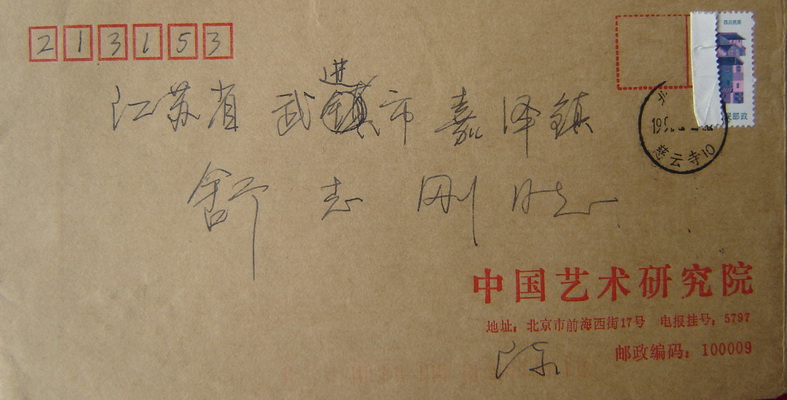 213153
江苏省 武进市 嘉泽镇
舒志刚 同志
慈云寺10
邮政
中国艺术研究院
地址：北京市前海西街17号 电报挂号：5797
邮政编码：100009
陈